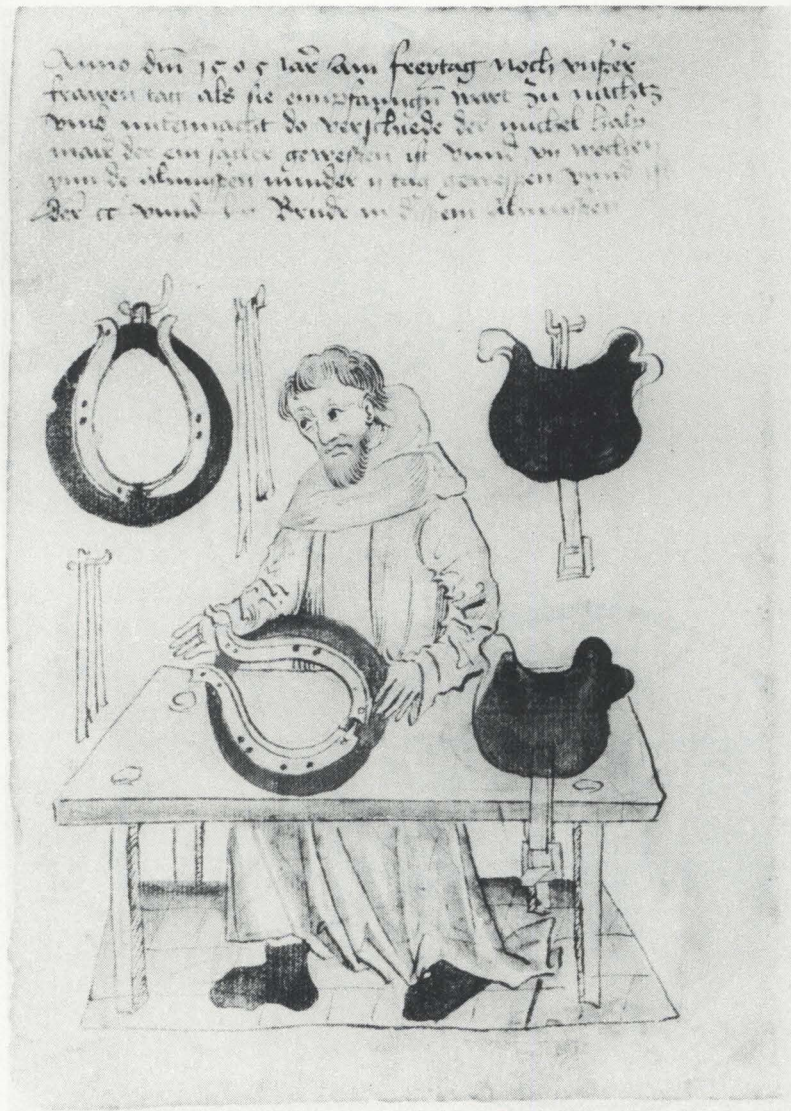 Anno dm̄ 1505 Jar am freytag noch vnßer
frawen tag als sie enpfangen wart zu nachtz
vms mitternacht do verschiede der michel
der ein satler geweßen ist vnnd wochen
ym de almußen minder ii tag gewessen vnnd ist
der vnnd Bruder in dissem almußen